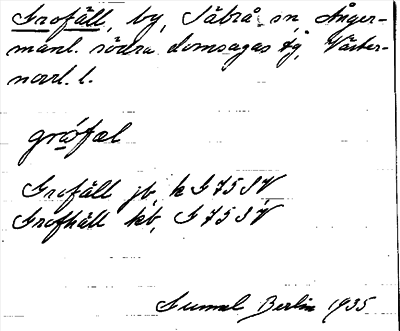 Grofäll, by, Säbrå sn Ånger-
manl. södra domsagas tg, Väster-
norrl. l.
grófæl
Grofäll jb, k G 75 I V
Grofhäll kb, G 75 I V
Gunnel Berlin 1935